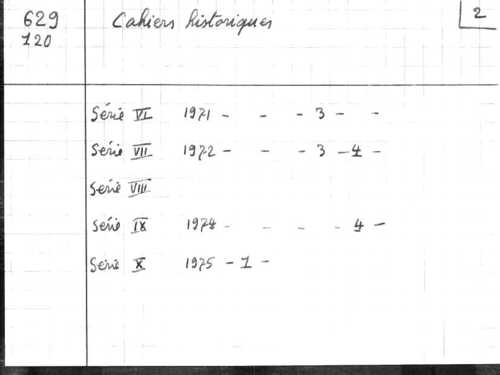 629 Cahiers historiques 2
120
Série VI 1971 - - - 3 - -
Série VII 1972 - - - 3 - 4 -
Série VIII
Série IX 1974 - - - - 4 -
Série X 1975 - 1 -